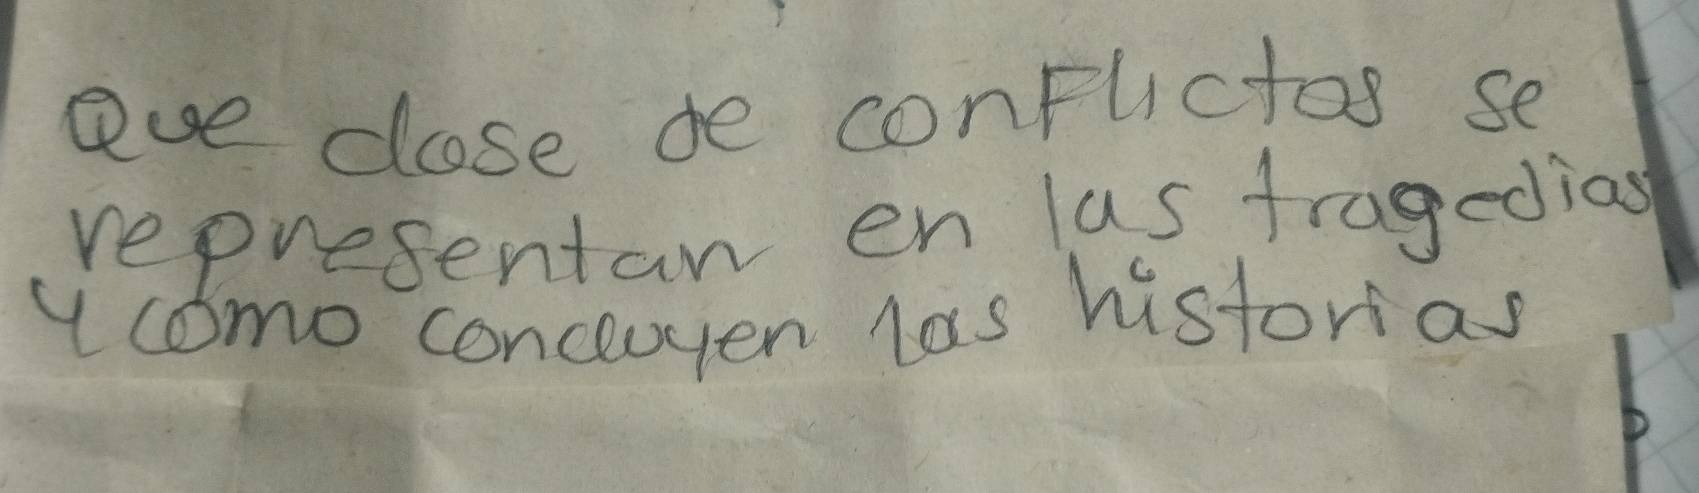 Que clase de conflictos se
representan en las tragedias
y como concluyen las historias